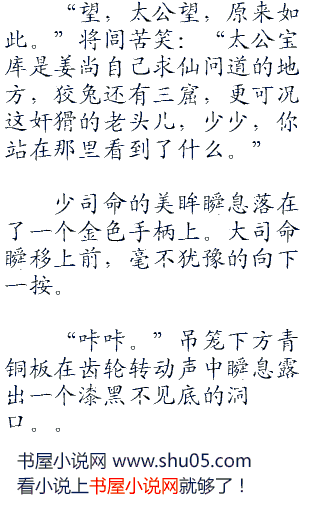 “望，太公望，原来如
此。”将闾苦笑：“太公宝
库是姜尚自己求仙问道的地
方，狡兔还有三窟，更可况
这奸猾的老头儿，少少，你
站在那里看到了什么。”
少司命的美眸瞬息落在
了一个金色手柄上。大司命
瞬移上前，毫不犹豫的向下
一按。
“咔咔。”吊笼下方青
铜板在齿轮转动声中瞬息露
出一个漆黑不见底的洞
口。。
书屋小说网 www.shu05.com
看小说上书屋小说网就够了！